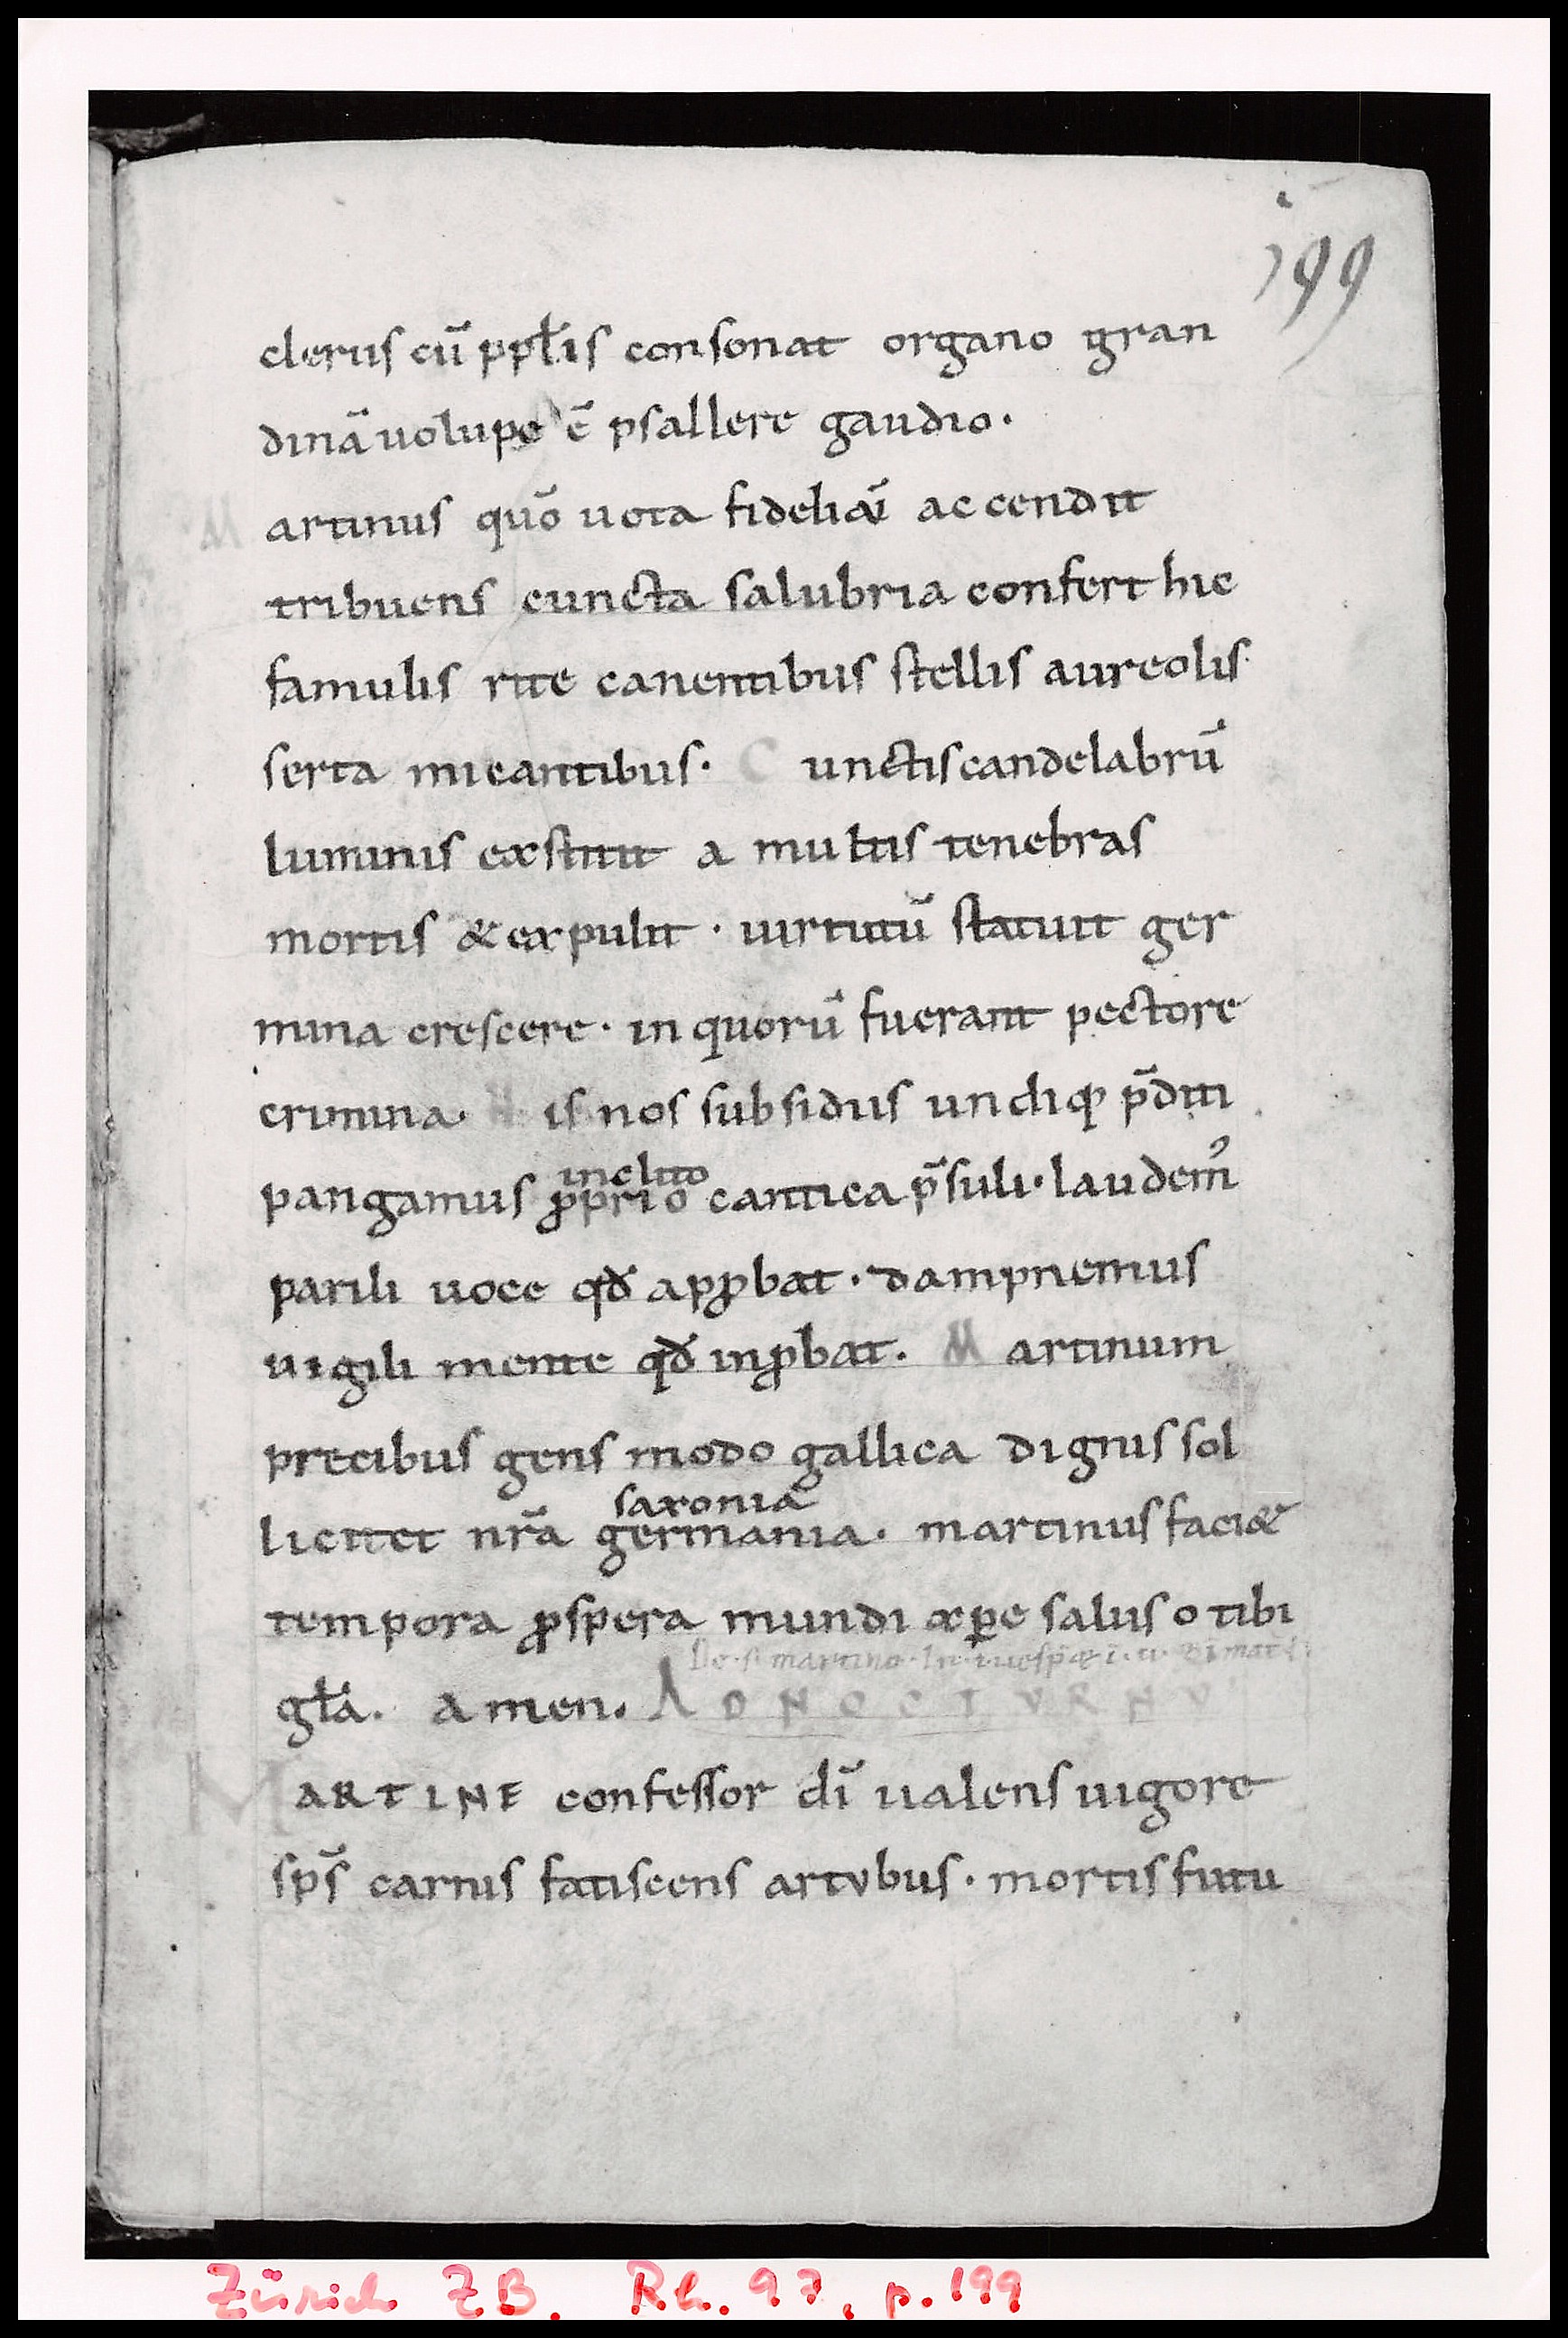 199
clerus cū ppłis consonat organo gran
dinā uolupe ē psallere gaudio.
Martinus quō uota fideliā accendit
tribuens cuncta salubria confert hic
famulis rite canentibus stellis aureolis
serta micantibus. Cunctis candelabrū
luminis exstitit a multis tenebras
mortis & expulit · uirtutū statuit ger
mina crescere · in quorū fuerant pectore
crimina. His nos subsidiis undiqꝫ p̄diti
inclito
pangamus ꝓprio cantica p̄suli · laudemꝰ
parili uoce qđ apꝓbat · dampnemus
uigili mente qđ inꝓbat. Martinum
precibus gens modo gallica dignis sol
saxonia
licitet nr̄a germania · martinus faci&
tempora ꝓspera mundi æꝑe salus o tibi
De · s̄ martino ·
gła. amen. AD NOCTURNV̄
MARTINE confessor dī ualens uigore
sp̄s carnis fatiscens artvbus · mortis futu
Zürich ZB. Rh. 97, p. 199